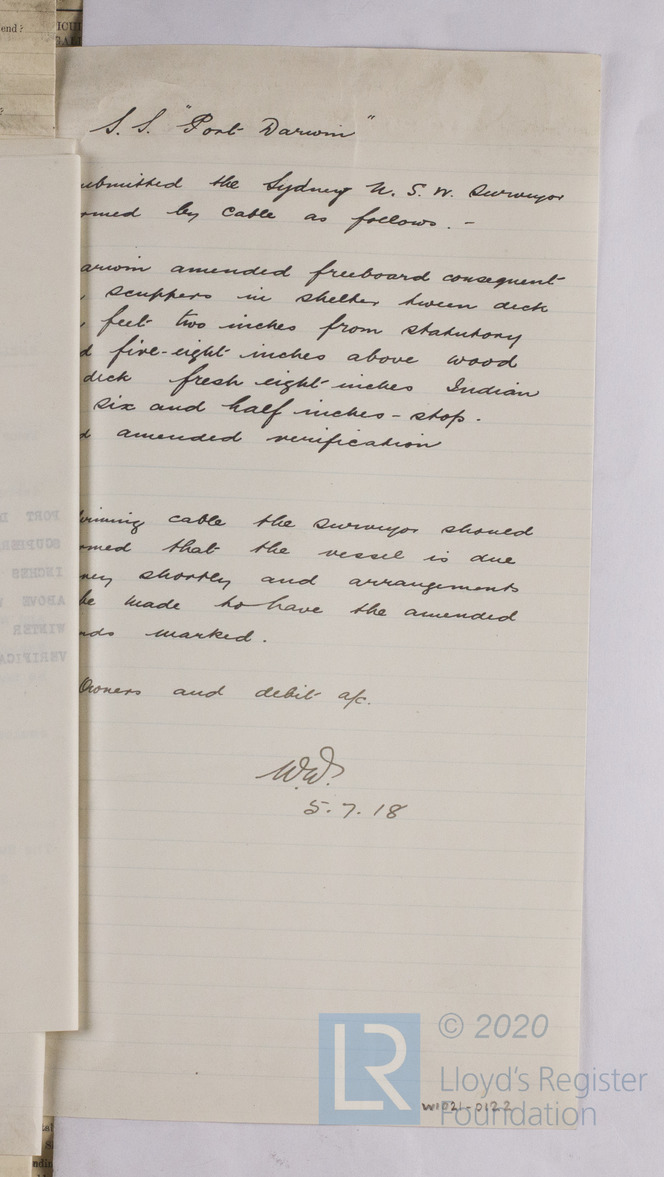 end?
S. S. "Port Darwin"
ubmitted the Sydney N. S. W. Surveyor
rmed by cable as follows. -
arwin amended freeboard consequent
, scuppers in shelter tween deck
, feet two inches from statutory
d five-eight inches above wood
deck fresh eight inches Indian
six and half inches - stop.
d amended verification
cable the surveyor should
rmed that the vessel is due
ney shortly and arrangements
be made to have the amended
nds marked.
Owners and debit a/c.
W.W.
5.7.18
PORT D
SCUPPER
INCHES
ABOVE
WINTER
VERIFICA
LR
© 2020
Lloyd's Register
Foundation
W1021-0122